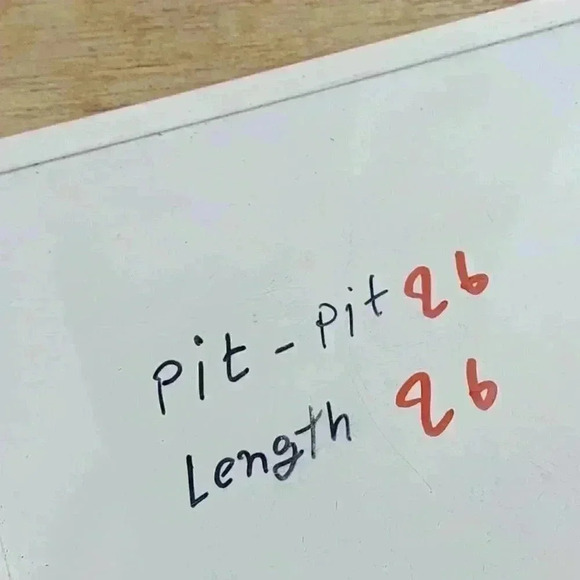 Pit - Pit 26
Length 26